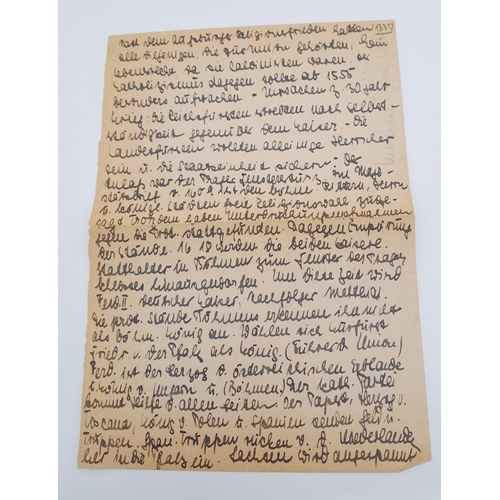 nach dem Augsburger Religionsfrieden hatten
alle diejenigen, die zur Union gehörten, kein
da sie Calvinisten waren. der
Katholizismus dagegen sollte ab 1555
besonders aufwachen - Ursachen z. 30 jähr.
Krieg: die Reichsfürsten streben nach Selbst-
ständigkeit gegenüber dem Kaiser - die
Landesfürsten wollten alleinige Herrscher
sein u. die Staatseinheit sichern - der
Anlaß war der Prager Fenstersturz, im Maje-
stätsbrief v. 1609 ist den böhm. Rittern, Herrn
u. königl. Städten freie Religionswahl zuge-
sagt trotzdem haben Unterdrückungsmaßnahmen
gegen die Prot. stattgefunden. Dagegen Empörung
der Stände. 16 werden die beiden kaiserl.
Statthalter in Böhmen zum Fenster des Prager
Schlosses hinausgeworfen. Um diese Zeit wird
Ferd. II. deutscher Kaiser, Nachfolger
die prot. Stände Böhmens erkennen ihn nicht
als böhm. König an. Wählen sich Kurfürst
Friedr. v. der Pfalz als König. (Führer d. Union)
Ferd. ist der Herzog d. österreichischen Erblande
u. König v. Ungarn u. (Böhmen) Der kath. Partei
kommt Hilfe v. allen Seiten. Der Papst, Herzog v.
Toscana, König v. Polen u. Spanien senden Geld u.
Truppen. Span. Truppen rücken v. d. Niederlande
her in die Pfalz ein. Sachsen wird